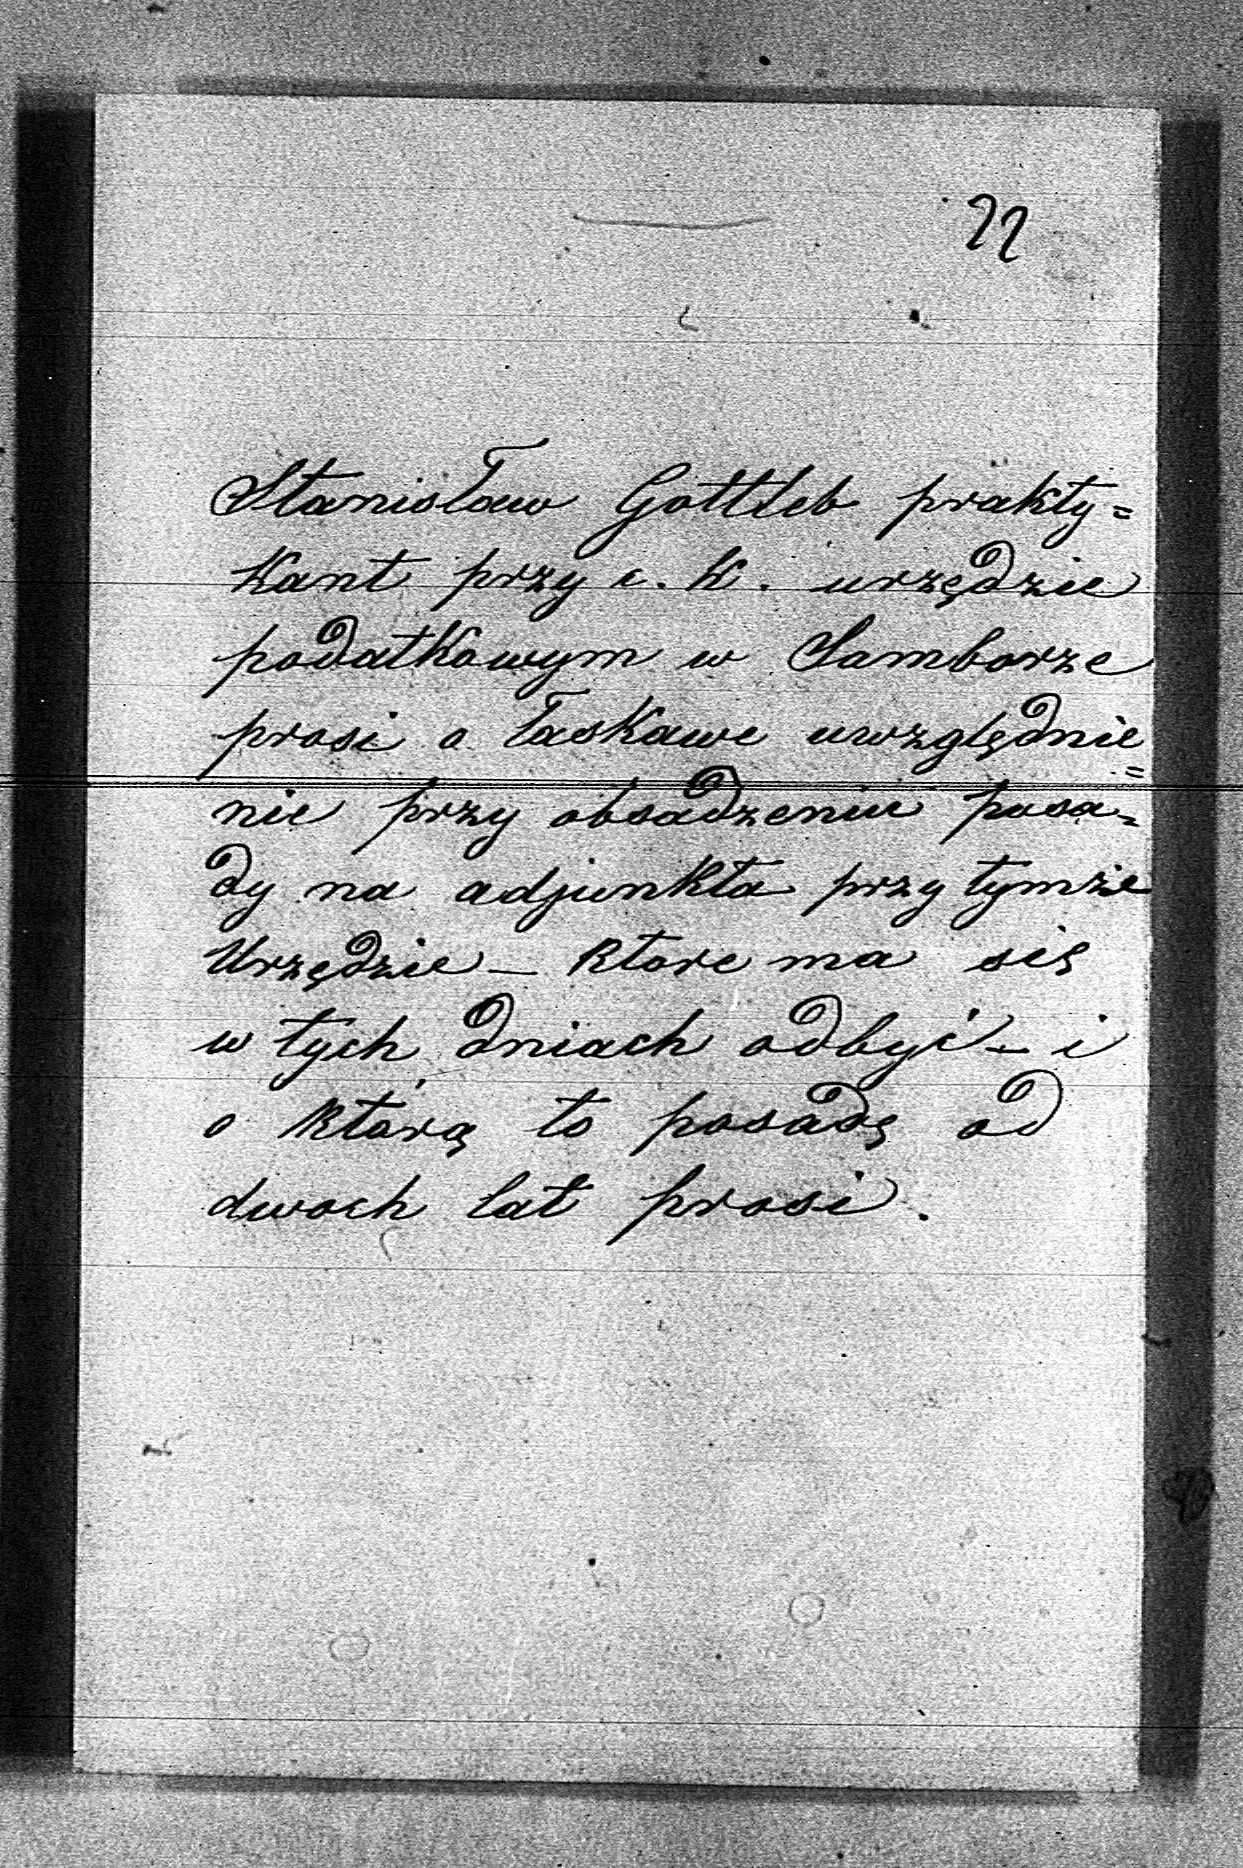 22
Stanisław Gottleb prakty=
kant przy c. k. urzędzie
podatkowym w Samborze
prosi o łaskawe uwzględnie=
nie przy obsadzeniu posa=
dy na adjunkta przy tymże
Urzędzie – które ma się
w tych dniach odbyć – i
o którą to posadę od
dwoch lat prosi.